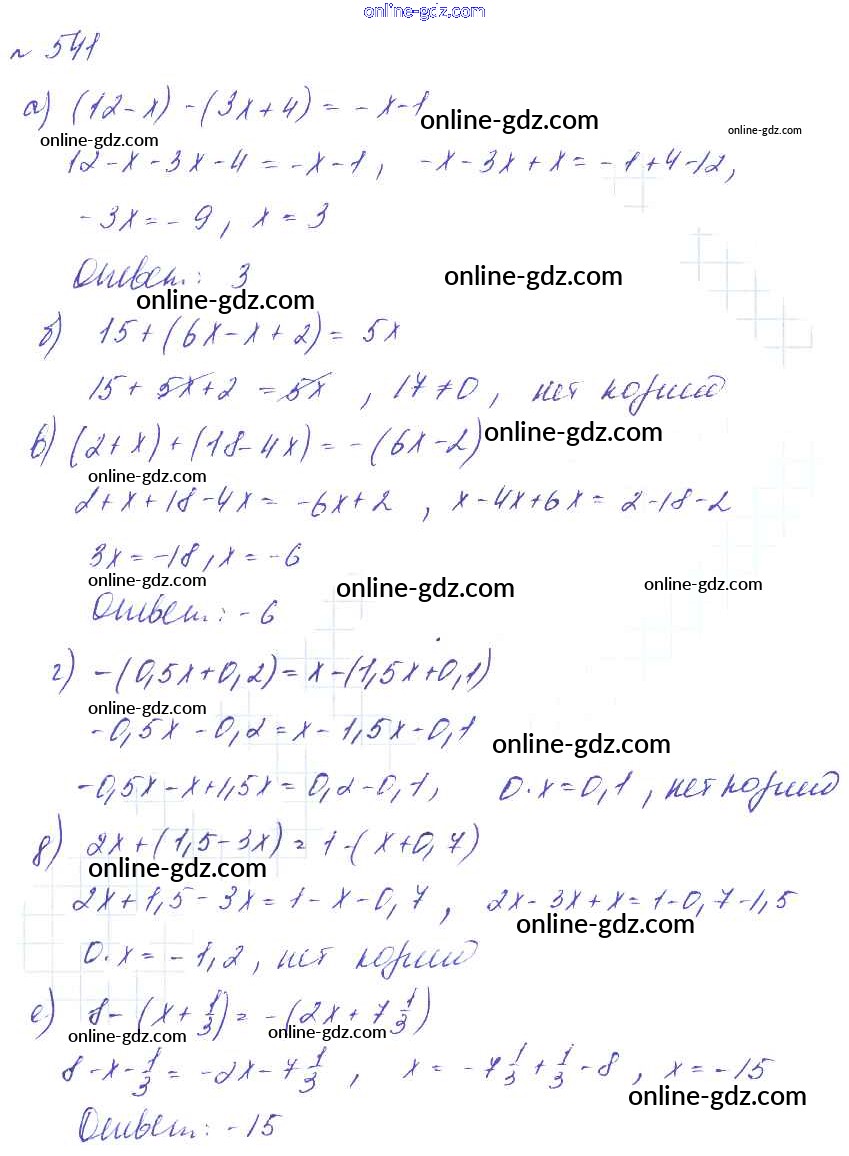 online-gdz.com
№ 541
а) (12-x) -(3x+4) = -x-1
online-gdz.com
online-gdz.com
online-gdz.com
12-x-3x-4 = -x-1, -x-3x+x = -1+4-12,
-3x = -9, x = 3
Ответ: 3
online-gdz.com
online-gdz.com
б) 15+(6x-x+2) = 5x
15+5x+2 = 5x, 17≠0, нет корней
в) (2+x)+(18-4x) = -(6x-2)
online-gdz.com
online-gdz.com
2+x+18-4x = -6x+2, x-4x+6x = 2-18-2
3x = -18, x = -6
online-gdz.com
online-gdz.com
online-gdz.com
Ответ: -6
г) -(0,5x+0,2) = x-(1,5x+0,1)
online-gdz.com
-0,5x-0,2 = x-1,5x-0,1
online-gdz.com
-0,5x-x+1,5x = 0,2-0,1, 0·x = 0,1, нет корней
д) 2x+(1,5-3x) = 1-(x+0,7)
online-gdz.com
2x+1,5-3x = 1-x-0,7, 2x-3x+x = 1-0,7-1,5
online-gdz.com
0·x = -1,2, нет корней
е) 8-(x+1/3) = -(2x+7 1/3)
online-gdz.com
online-gdz.com
8-x-1/3 = -2x-7 1/3, x = -7 1/3+1/3-8, x = -15
online-gdz.com
Ответ: -15